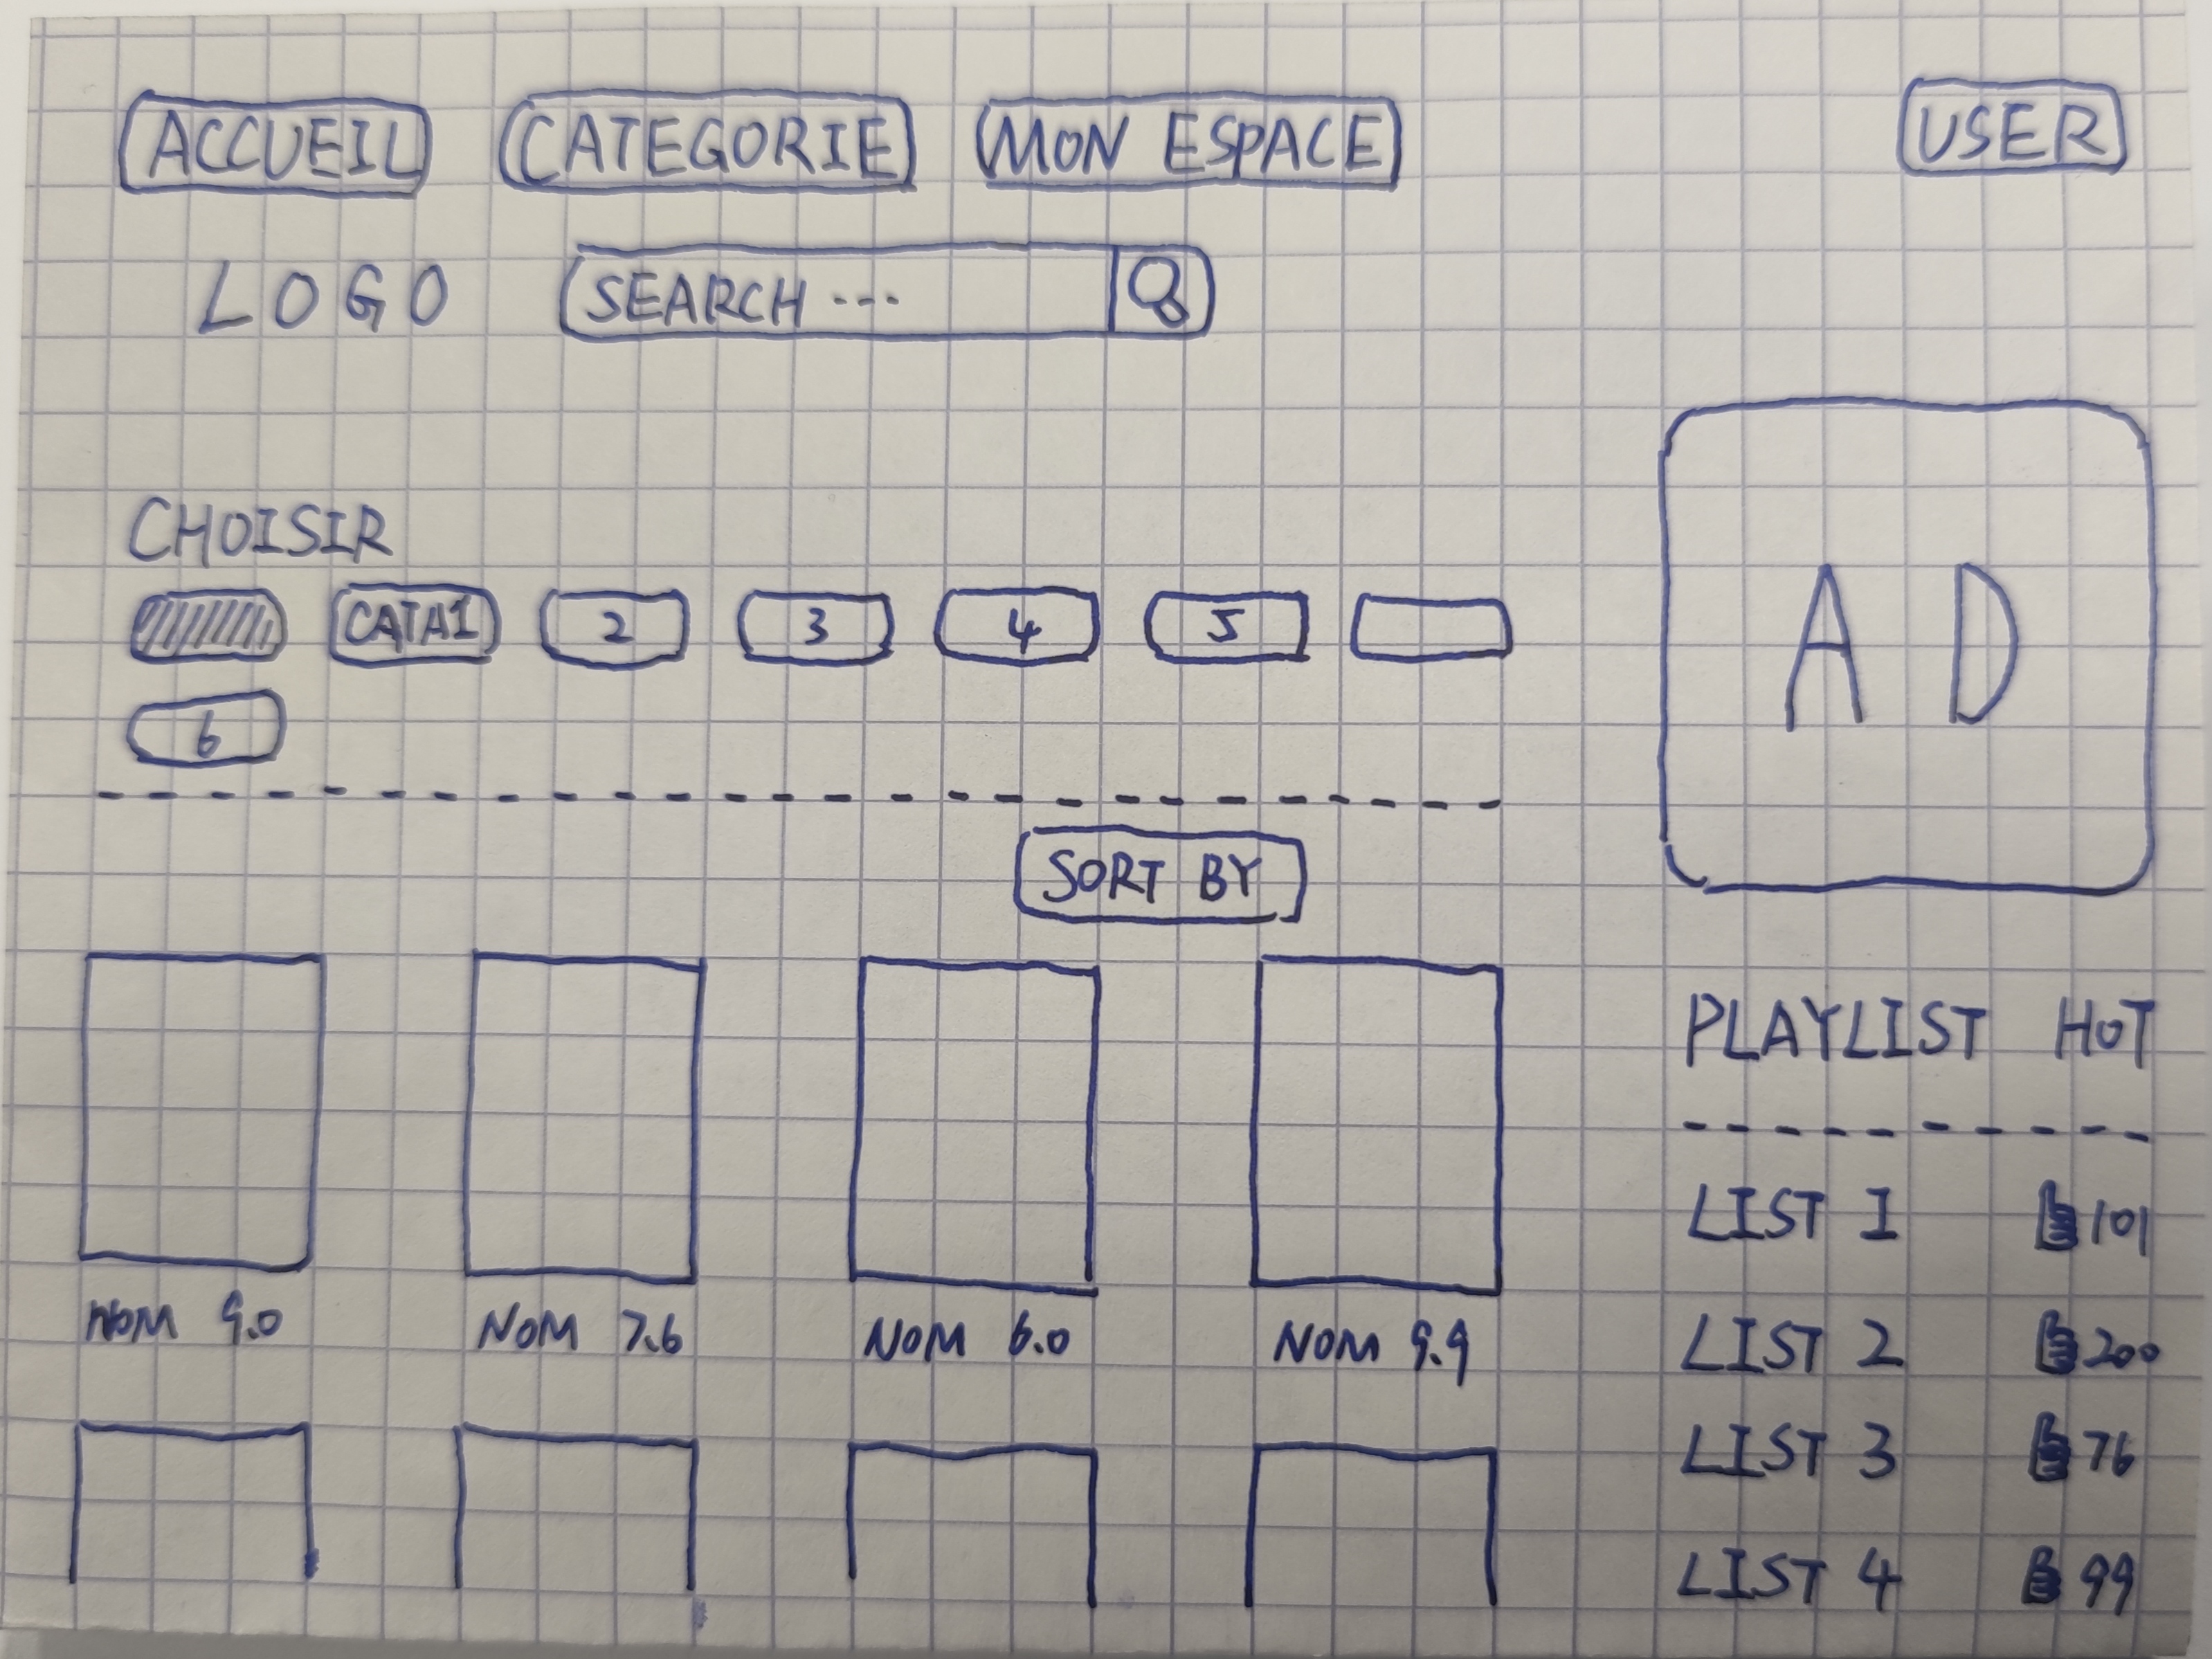 ACCUEIL CATEGORIE MON ESPACE USER
LOGO SEARCH ---
CHOISIR
CATA1 2 3 4 5
6
AD
SORT BY
NOM 9.0 NOM 7.6 NOM 6.0 NOM 9.9
PLAYLIST HOT
LIST 1 101
LIST 2 200
LIST 3 76
LIST 4 99